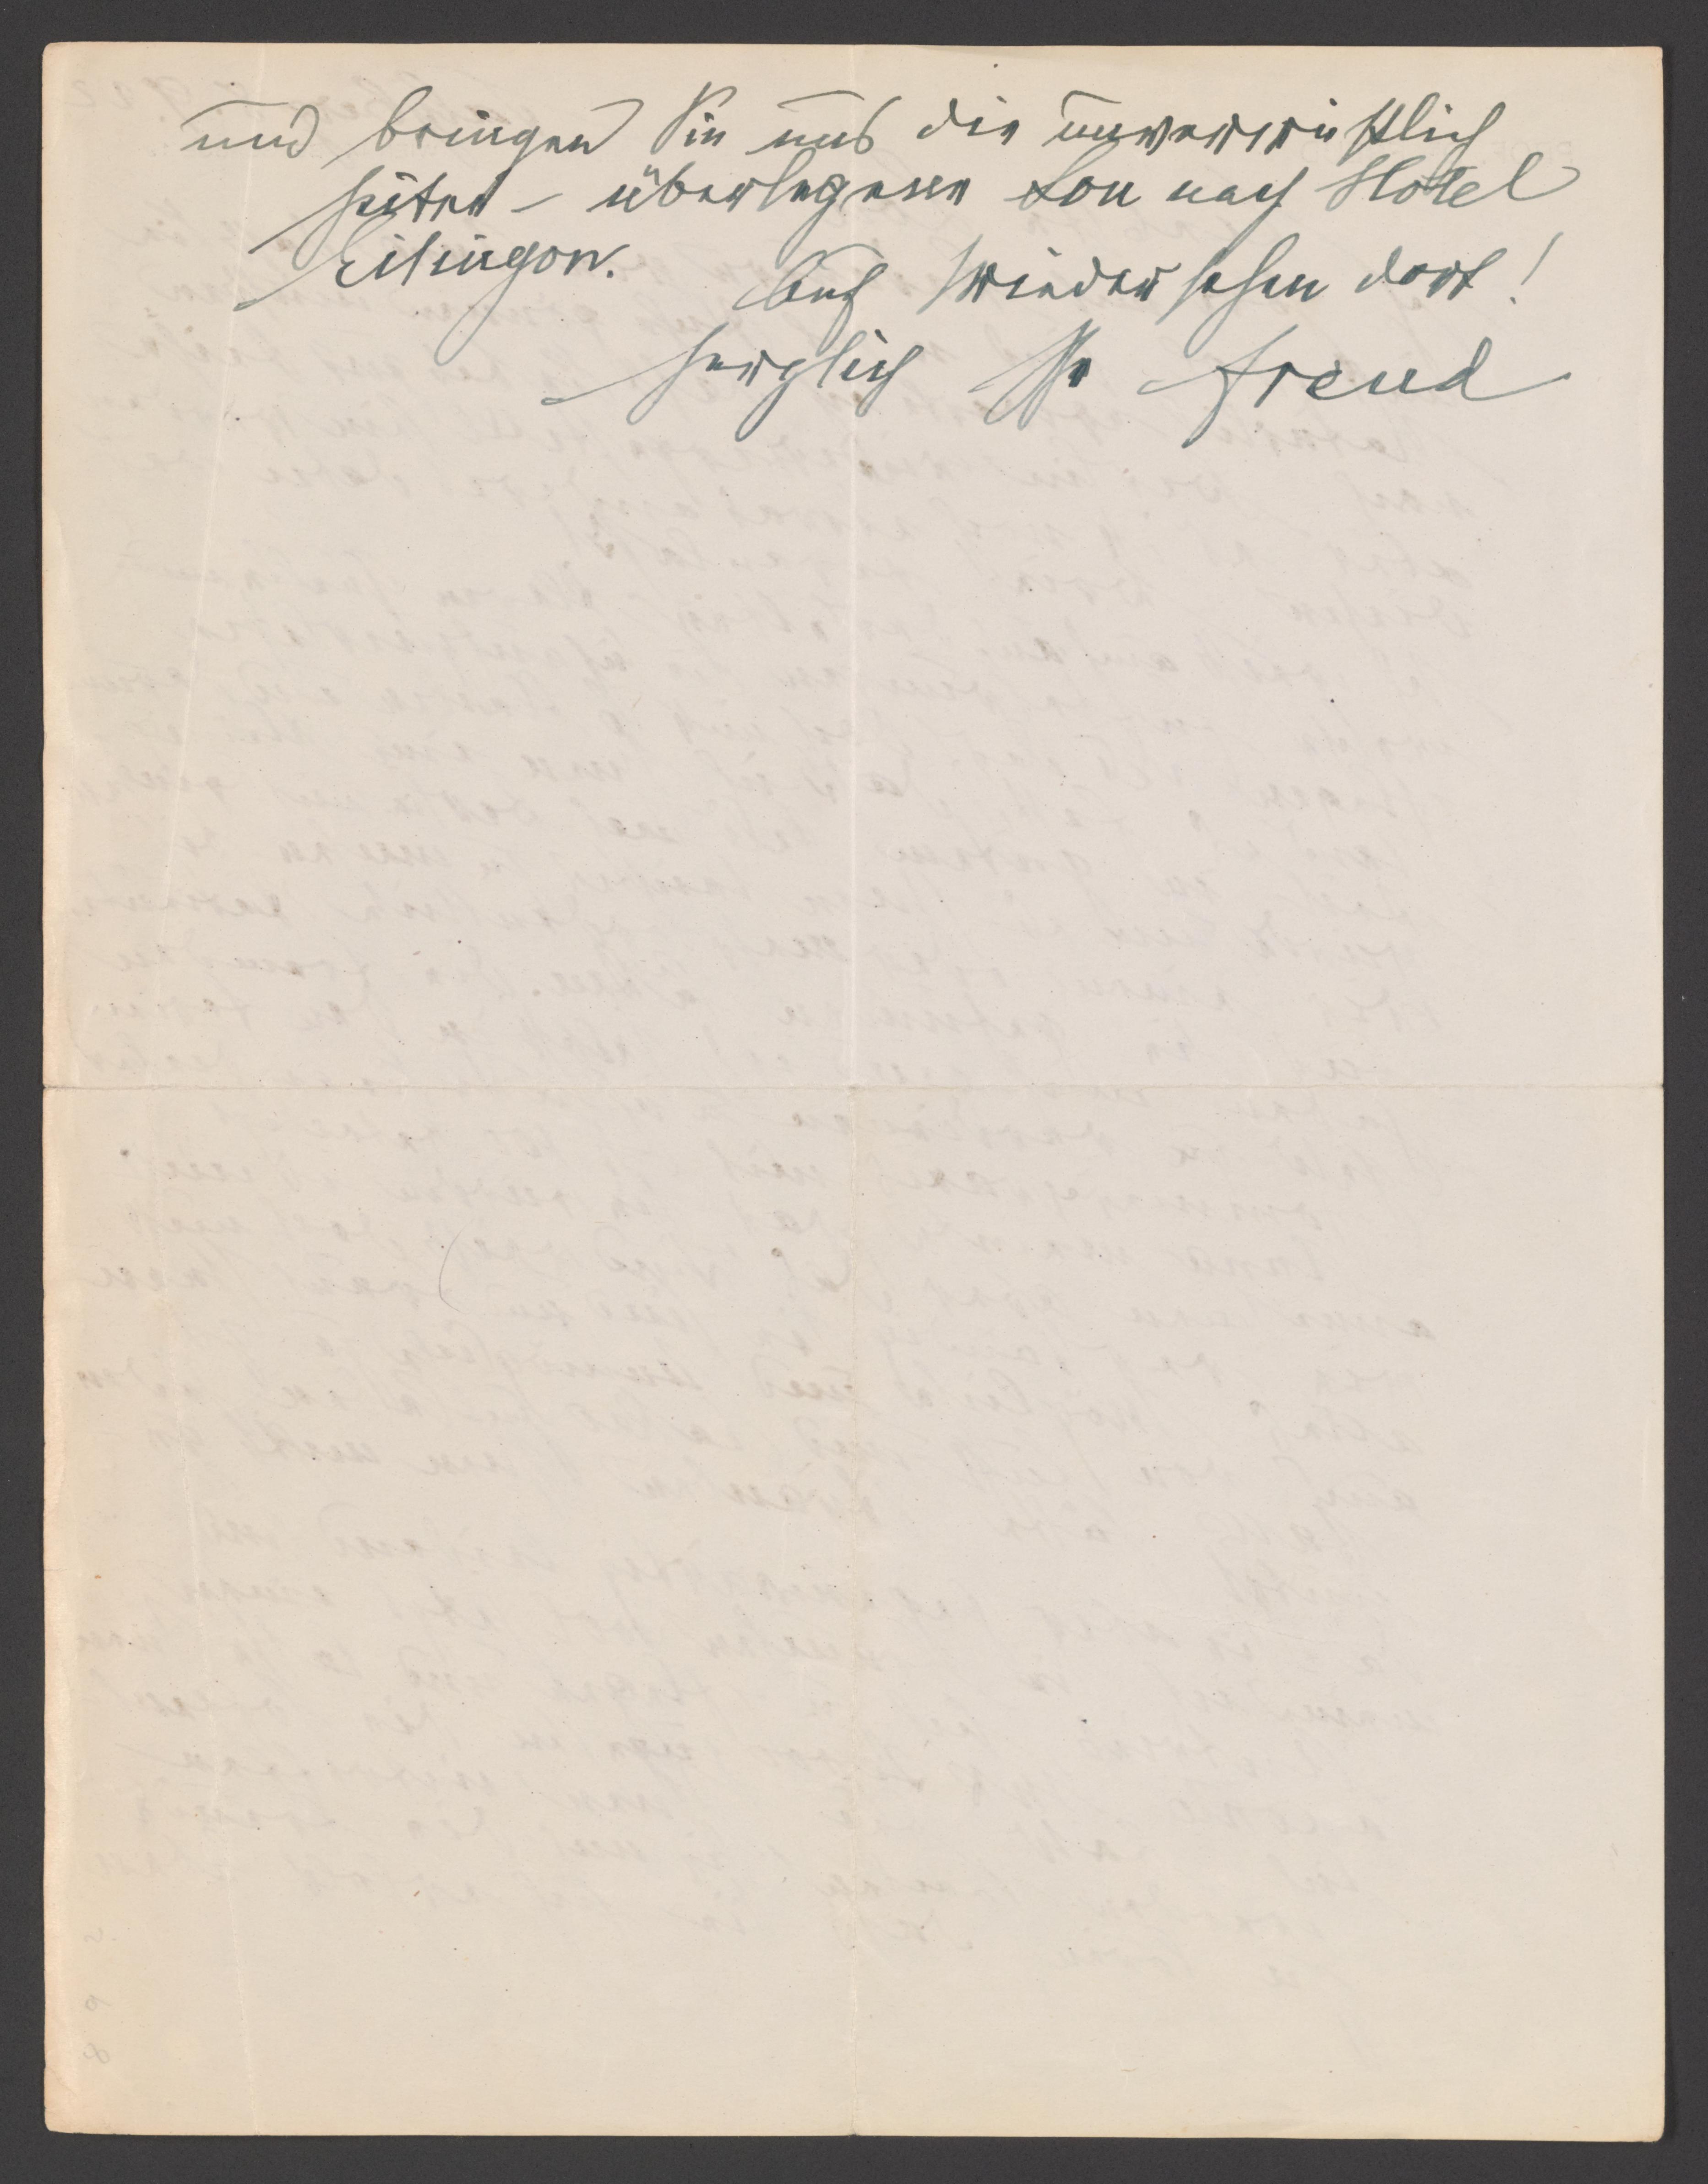 und bringen Sie uns die unverwüstlich
heiter – überlegene Lou nach Hotel
Eitingon. Auf Wiedersehen dort!
herzlich Ihr Freud